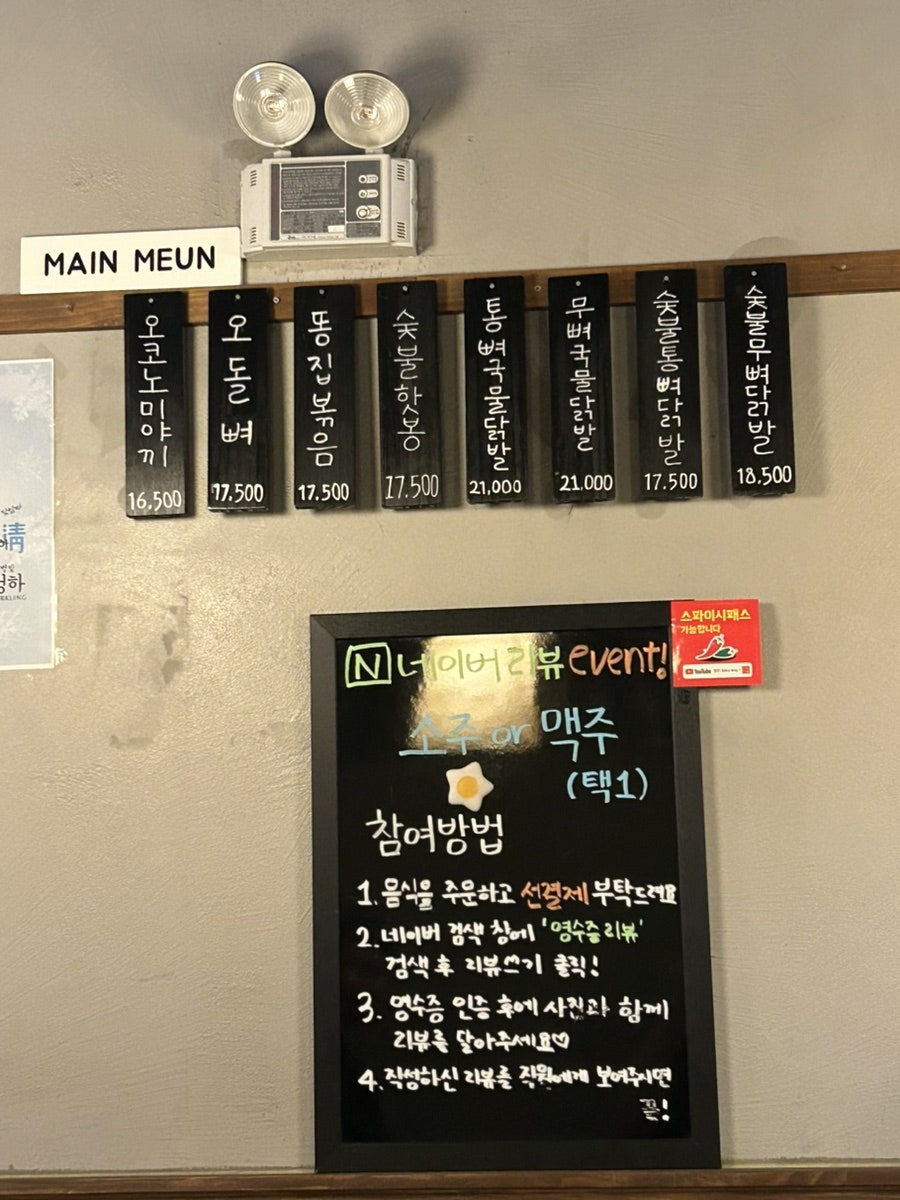 MAIN MEUN
오코노미야끼
16,500
오돌뼈
17.500
똥집볶음
17.500
숯불핫봉
17.500
통뼈국물닭발
21,000
무뼈국물닭발
21.000
숯불통뼈닭발
17.500
숯불무뼈닭발
18.500
스파이시패스
가능합니다
YouTube
N 네이버리뷰 event!
소주 or 맥주
(택1)
참여방법
1. 음식을 주문하고 선결제 부탁드려요
2. 네이버 검색 창에 '영수증리뷰'
검색 후 리뷰쓰기 클릭!
3. 영수증 인증 후에 사진과 함께
리뷰를 달아주세요♡
4. 작성하신 리뷰를 직원에게 보여주시면
끝!